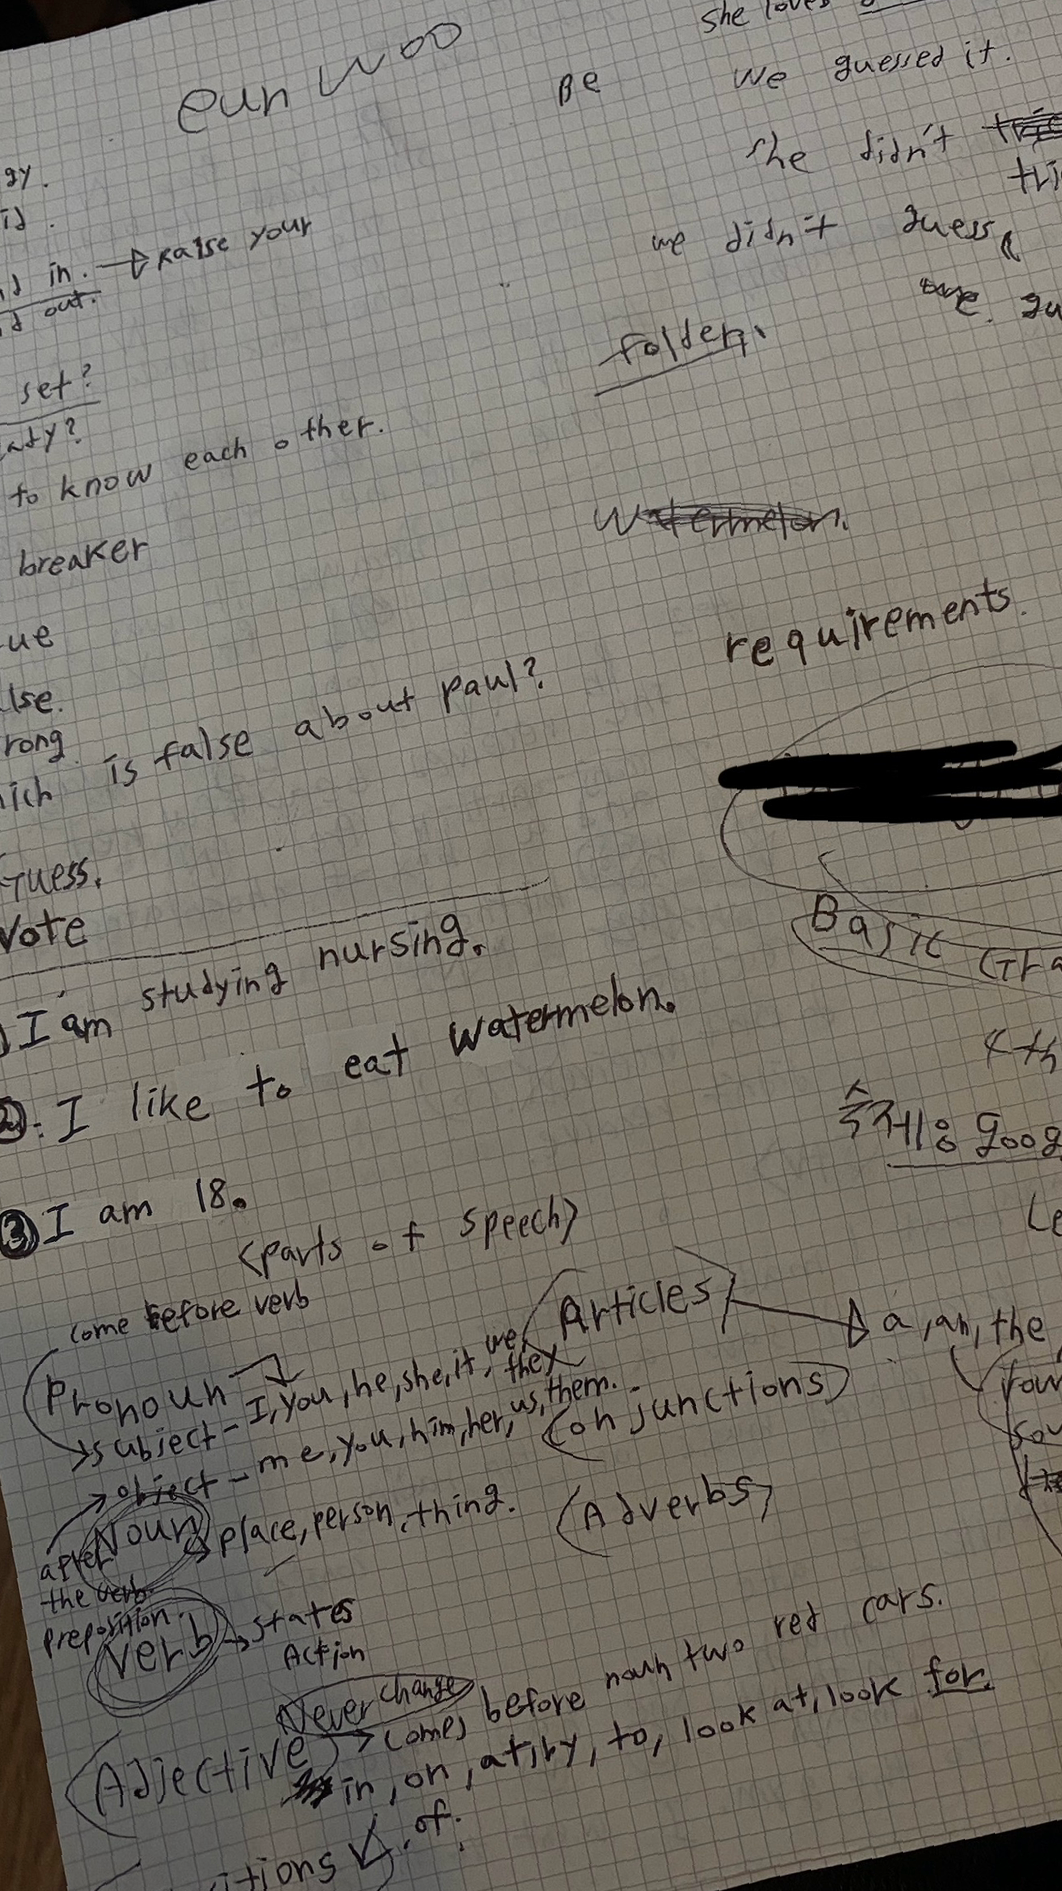 eun woo
Be
she loves
We guessed it.
she didn't
we didn't guess,
folder.
gy.
id.
in. → Raise your
out.
set?
ady?
to know each other.
Watermelon.
breaker
requirements.
ue
lse.
rong
hich is false about paul?
Guess.
Vote
Basic Gra
I am studying nursing.
4th
②. I like to eat watermelon.
숙제: goog
③ I am 18.
Le
<parts of speech>
come before verb
(Articles) → a, an, the
Pronoun
subject - I, you, he, she, it, we, they
object - me, you, him, her, us, them.
(Conjunctions)
Noun → place, person, thing.
(Adverbs)
after
the verb
preposition.
Verb → states
Action
Never change
(Adjective) → comes before noun two red cars.
in, on, at, by, to, look at, look for
itions of.